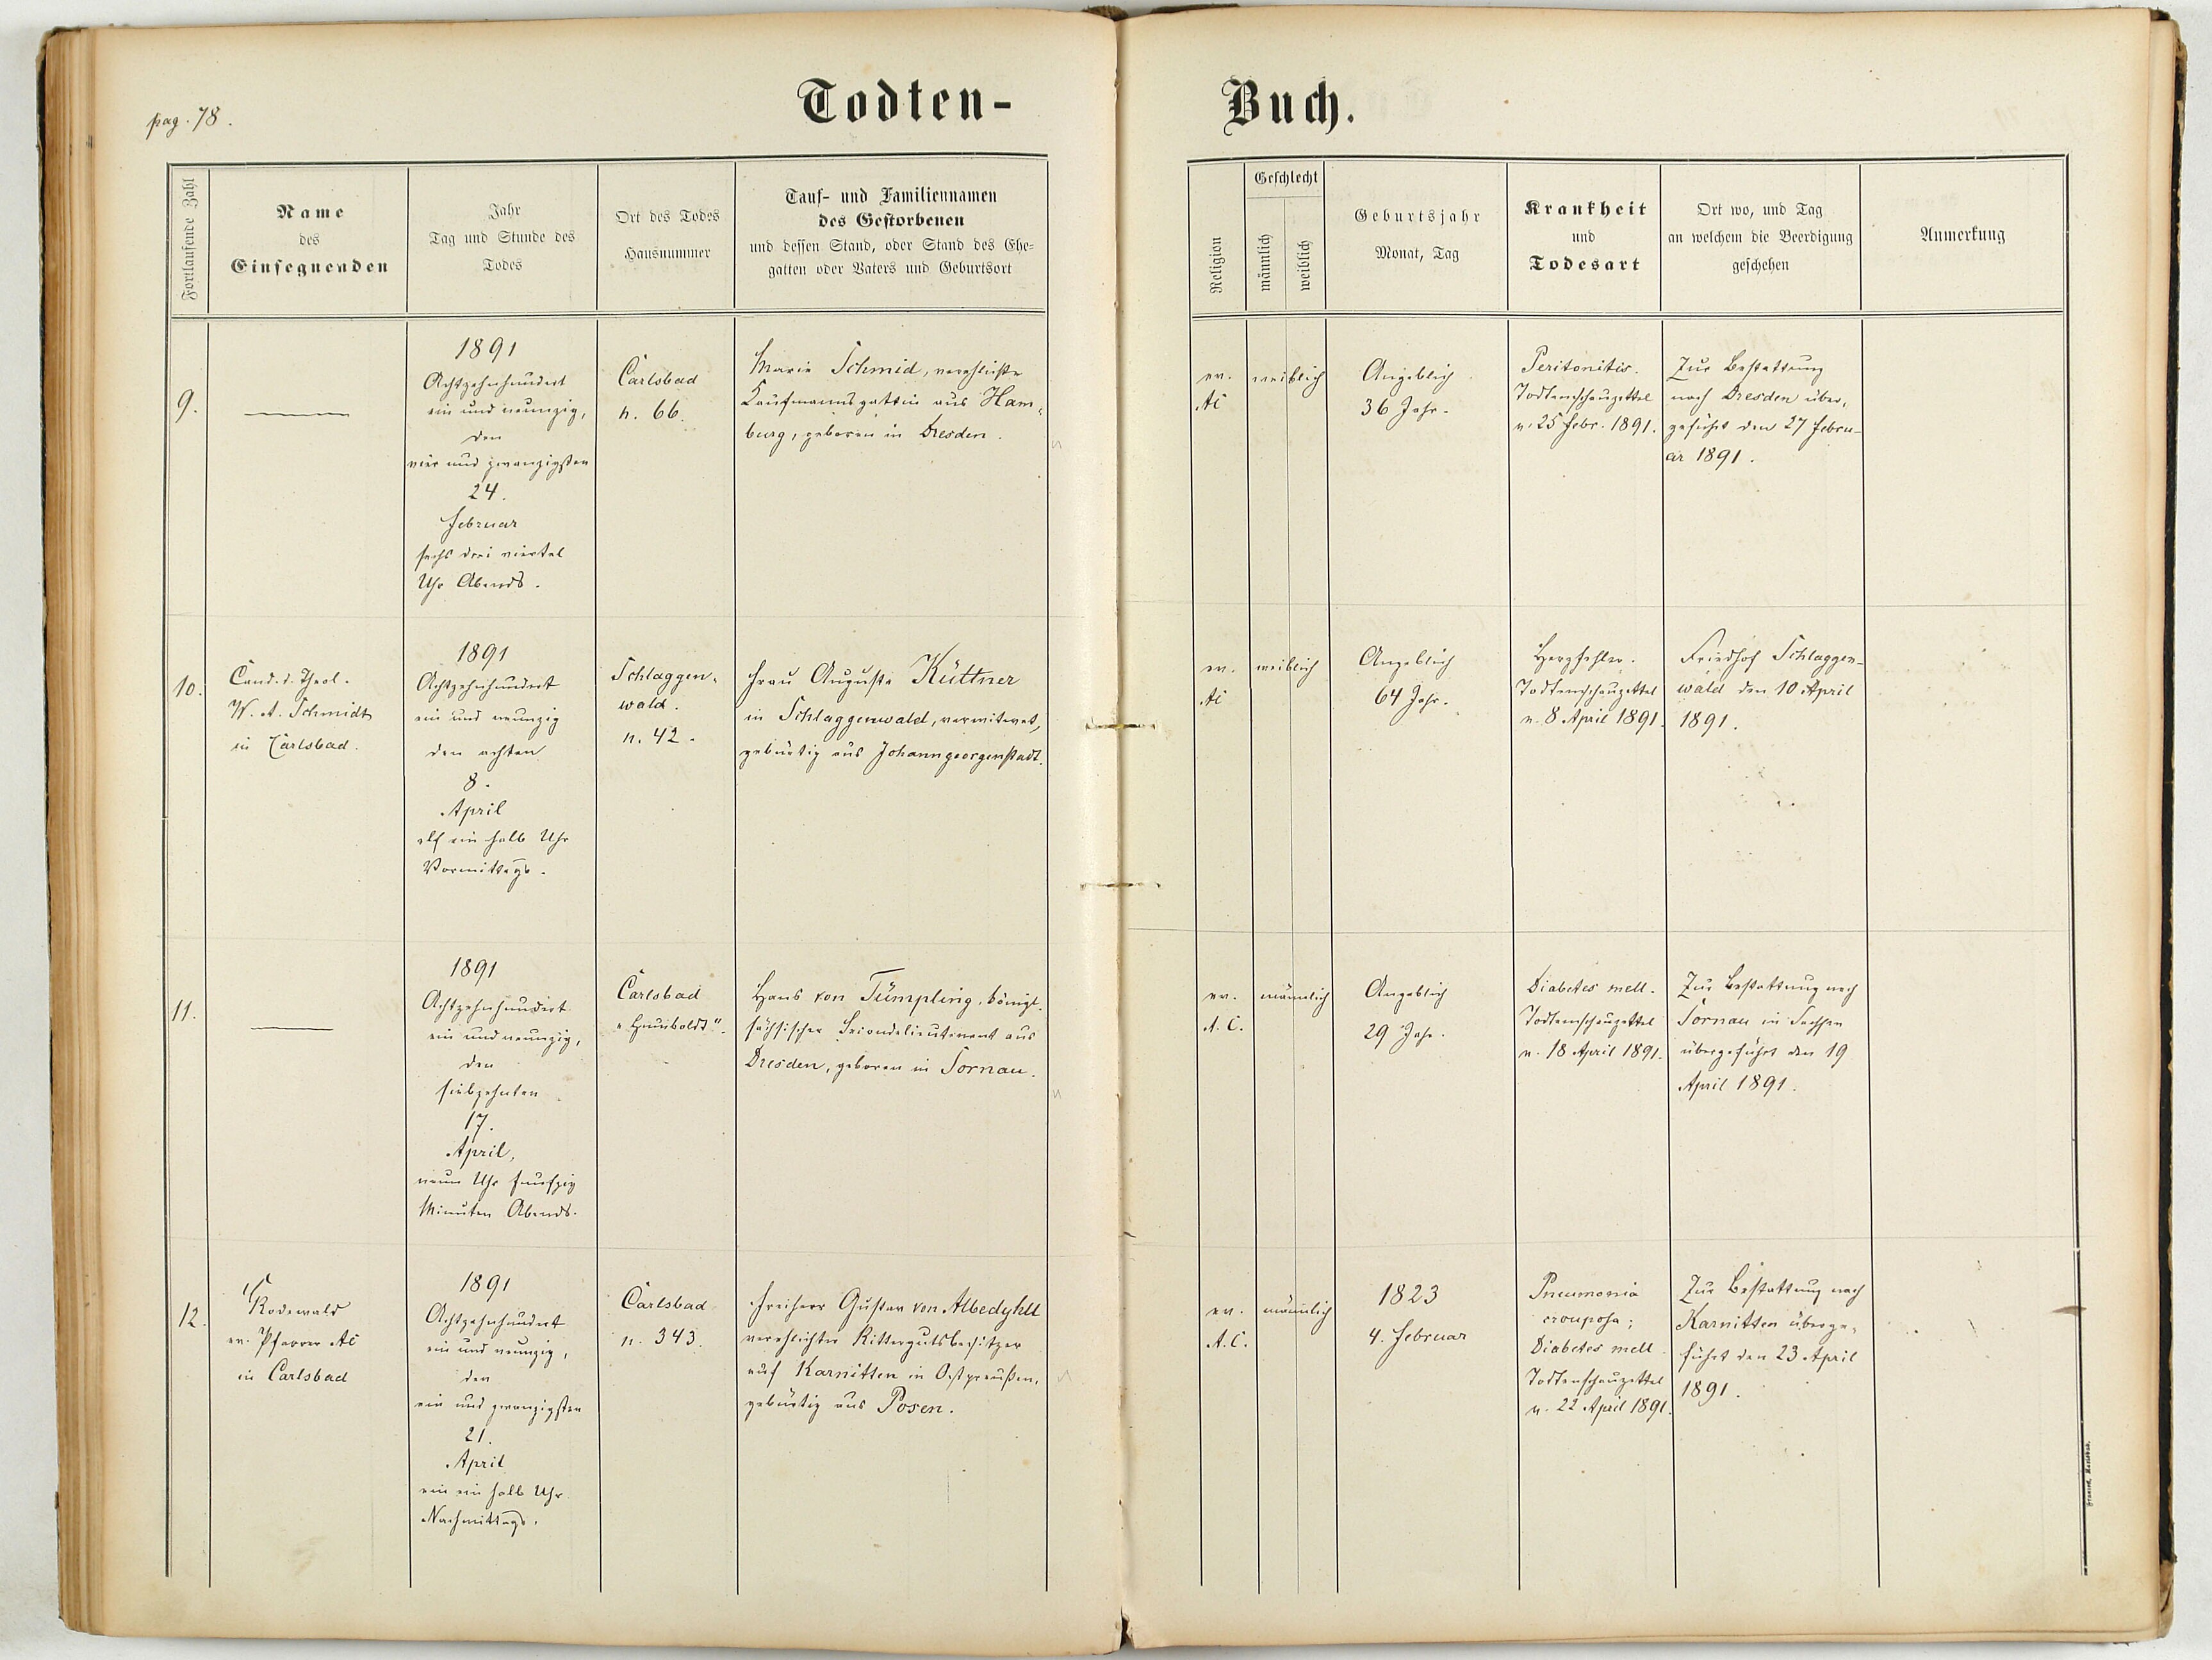 pag. 78.
Todten-
Buch.
Fortlaufende Zahl
Name
des
Einsegnenden
Jahr
Tag und Stunde des
Todes
Ort des Todes
Hausnummer
Tauf- und Familiennamen
des Gestorbenen
und dessen Stand, oder Stand des Ehe-
gatten oder Vaters und Geburtsort
Religion
Geschlecht
männlich
weiblich
Geburtsjahr
Monat, Tag
Krankheit
und
Todesart
Ort wo, und Tag
an welchem die Beerdigung
geschehen
Anmerkung
9.
1891
Achtzehnhundert
ein und neunzig,
den
vier und zwanzigsten
24.
Februar
sechs drei viertel
Uhr Abends.
Carlsbad
n. 66.
Marie Schmid, verehlichte
Kaufmannsgattin aus Ham-
burg, geboren in Dresden.
ev.
AC
weiblich
Angeblich
36 Jahr.
Peritonitis.
Todtenschauzettel
v. 25 Febr. 1891.
Zur Bestattung
nach Dresden über-
geführt den 27 Febru-
ar 1891.
10.
Cand. d. Theol.
W. A. Schmidt
in Carlsbad.
1891
Achtzehnhundert
ein und neunzig
den achten
8.
April
elf ein halb Uhr
Vormittags.
Schlaggen-
wald.
n. 42.
Frau Auguste Küttner
in Schlaggenwald, verwitwet,
gebürtig aus Johanngeorgenstadt.
ev.
AC
weiblich
Angeblich
64 Jahr.
Herzfehler.
Todtenschauzettel
v. 8 April 1891.
Friedhof Schlaggen-
wald den 10 April
1891.
11.
1891
Achtzehnhundert
ein und neunzig,
den
siebzehnten
17.
April,
neun Uhr fünfzig
Minuten Abends.
Carlsbad
"Humboldt".
Hans von Tümpling, königl.
sächsischer Secondelieutenant aus
Dresden, geboren in Tornau.
ev.
A. C.
männlich
Angeblich
29 Jahr.
Diabetes mell.
Todtenschauzettel
v. 18 April 1891.
Zur Bestattung nach
Tornau in Sachsen
übergeführt den 19
April 1891.
12.
Rodewald
ev. Pfarrer AC
in Carlsbad
1891
Achtzehnhundert
ein und neunzig,
den
ein und zwanzigsten
21.
April
ein ein halb Uhr
Nachmittags.
Carlsbad
n. 343.
Freiherr Gustav von Albedyhll
verehlichter Rittergutsbesitzer
auf Karnitten in Ostpreußen,
gebürtig aus Posen.
ev.
A. C.
männlich
1823
4. Februar
Pneumonia
crouposa;
Diabetes mell.
Todtenschauzettel
v. 22 April 1891.
Zur Bestattung nach
Karnitten überge-
führt den 23 April
1891.